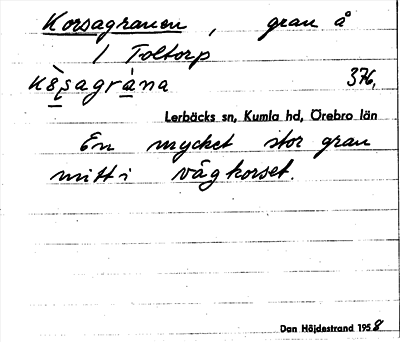 Korsagranen, gran å
1 Toltorp
376.
Lerbäcks sn, Kumla hd, Örebro län
En mycket stor gran
mitt i vägkorset.
Dan Höjdestrand 1958